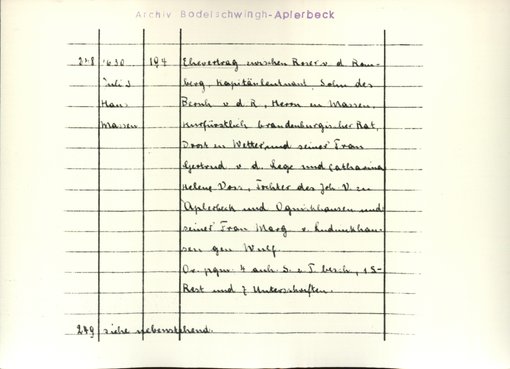 Archiv Bodelschwingh-Aplerbeck
218 1630 194 Ehevertrag zwischen Roser v. d. Rom-
Juli 3 berg, Kapitänleutnant, Sohn des
Haus Bernh v d R, Herrn zu Massen,
Massen Kurfürstlich brandenburgischer Rat,
Drost zu Wetter und seiner Frau
Gertrud v. d. Lege und Catharina
Helene Voss, Tochter des Joh V. zu
Aplerbeck und und
seiner Frau Marg v.
sen gen Wulf.
Or. pgm. 4 anh S. z T. besch, 1 S-
Rest und 7 Unterschriften.
219 siehe nebenstehend.